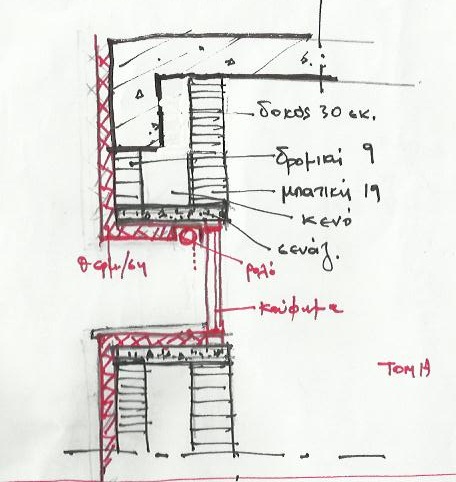 δοκος 30 εκ.
δρομική 9
μπατική 19
κενό
σενάζ.
ρολό
θερμ/ση
κούφωμα
ΤΟΜΗ